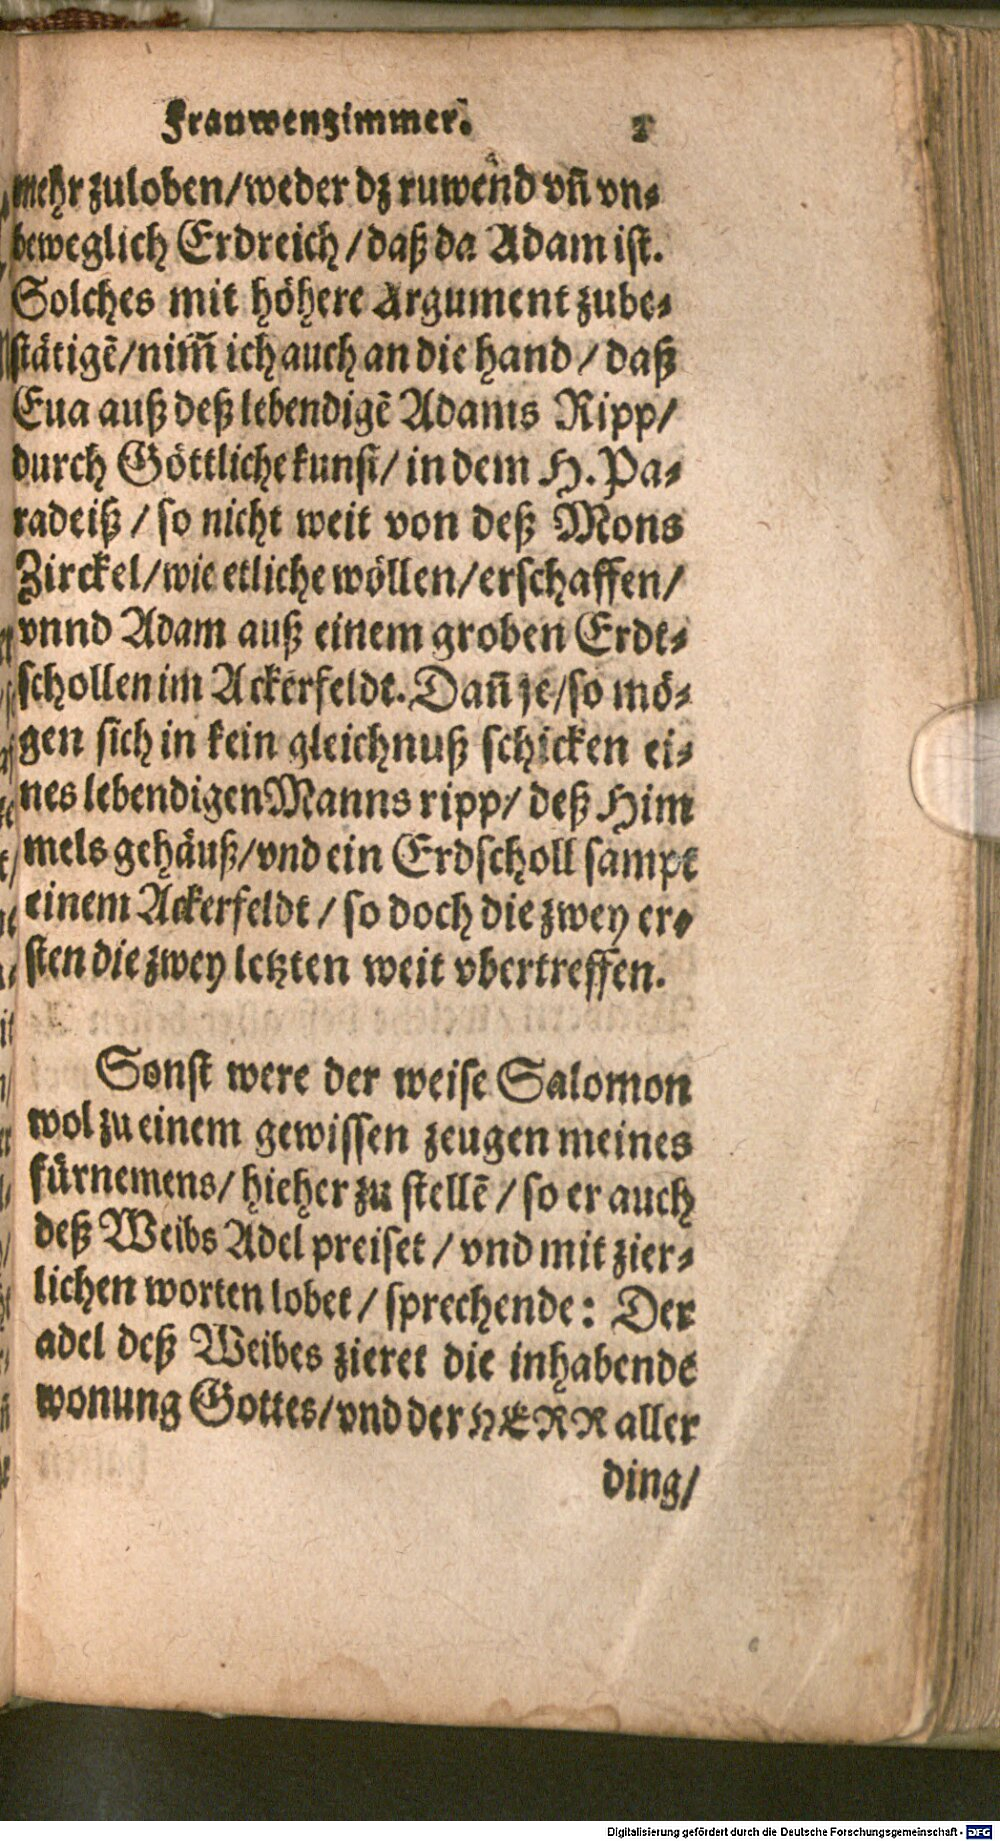 Frauwenzimmer. 2
mehr zuloben/weder dz ruwend vñ vn-
beweglich Erdreich/daß da Adam ist.
Solches mit höhere Argument zube-
stätigẽ/nim̃ ich auch an die hand/daß
Eua auß deß lebendigẽ Adams Ripp/
durch Göttliche kunst/in dem H. Pa-
radeiß/so nicht weit von deß Mons
Zirckel/wie etliche wöllen/erschaffen/
vnnd Adam auß einem groben Erdt-
schollen im Ackerfeldt. Dañ je/so mö-
gen sich in kein gleichnuß schicken ei-
nes lebendigen Manns ripp/deß Him
mels gehäuß/vnd ein Erdscholl sampt
einem Ackerfeldt/so doch die zwey er-
sten die zwey letzten weit vbertreffen.
Sonst were der weise Salomon
wol zu einem gewissen zeugen meines
fürnemens/hieher zu stellẽ/so er auch
deß Weibs Adel preiset/vnd mit zier-
lichen worten lobet/sprechende: Der
adel deß Weibes zieret die inhabende
wonung Gottes/vnd der HERR aller
ding/
Digitalisierung gefördert durch die Deutsche Forschungsgemeinschaft - DFG